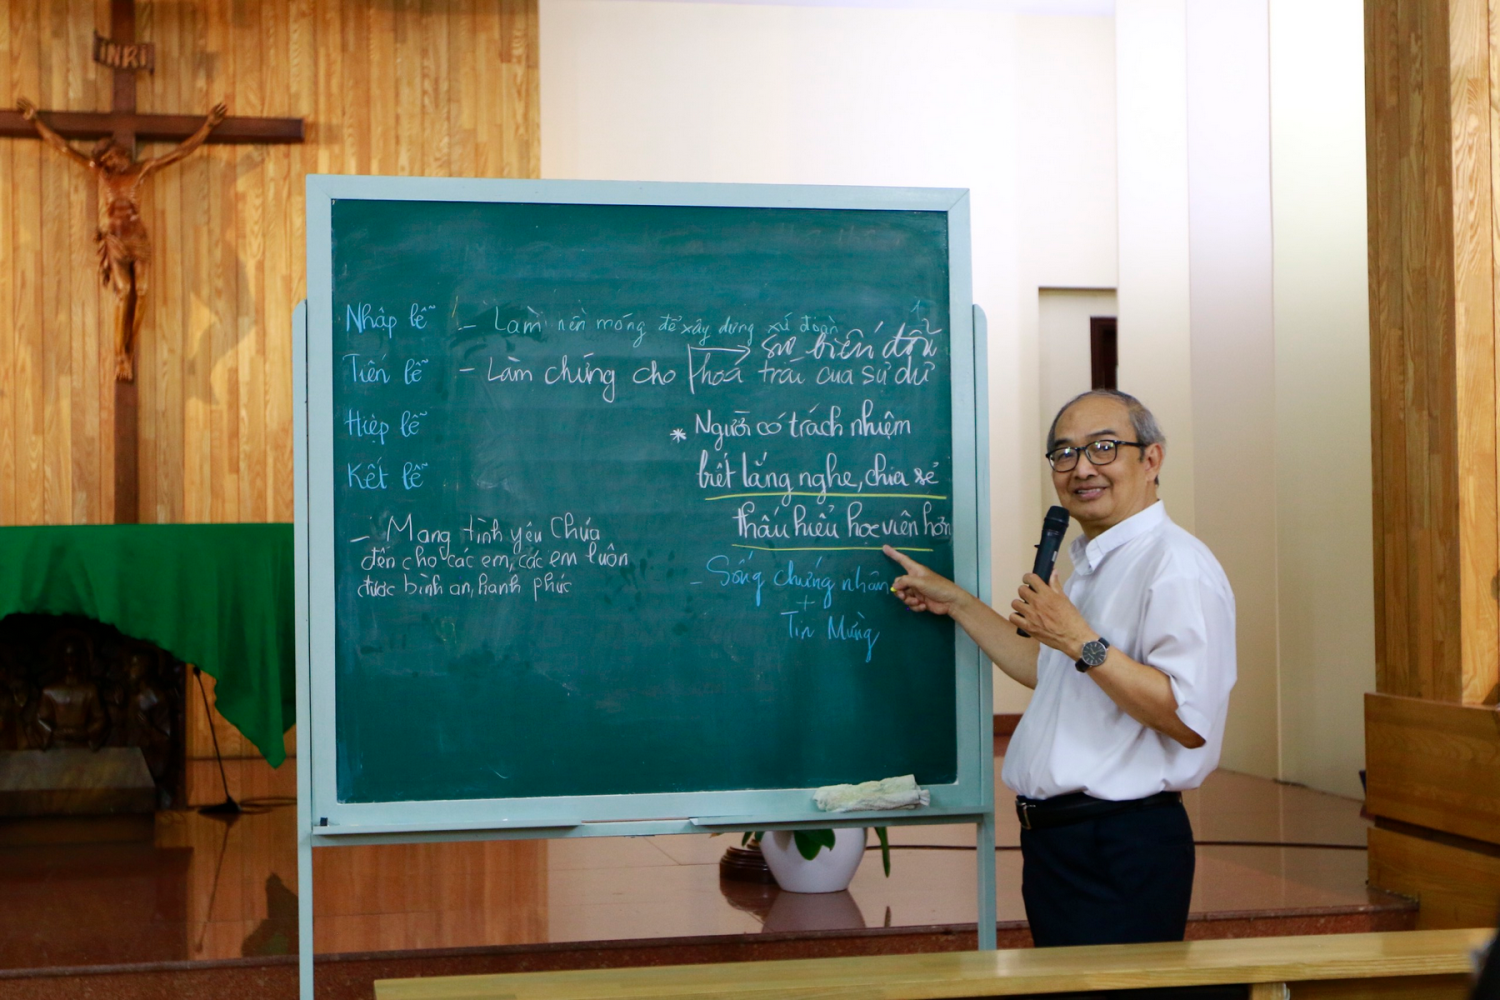 INRI
Nhập lễ
Tiến lễ
Hiệp lễ
Kết lễ
– Làm nền móng để xây dựng xứ đoàn
sự biến đổi
– Làm chứng cho hoa trái của sứ
* Người có trách nhiệm
biết lắng nghe, chia sẻ
thấu hiểu học viên hơn
– Sống chứng nhân
+
Tin Mừng
– Mang tình yêu Chúa
đến cho các em, các em luôn
được bình an, hạnh phúc